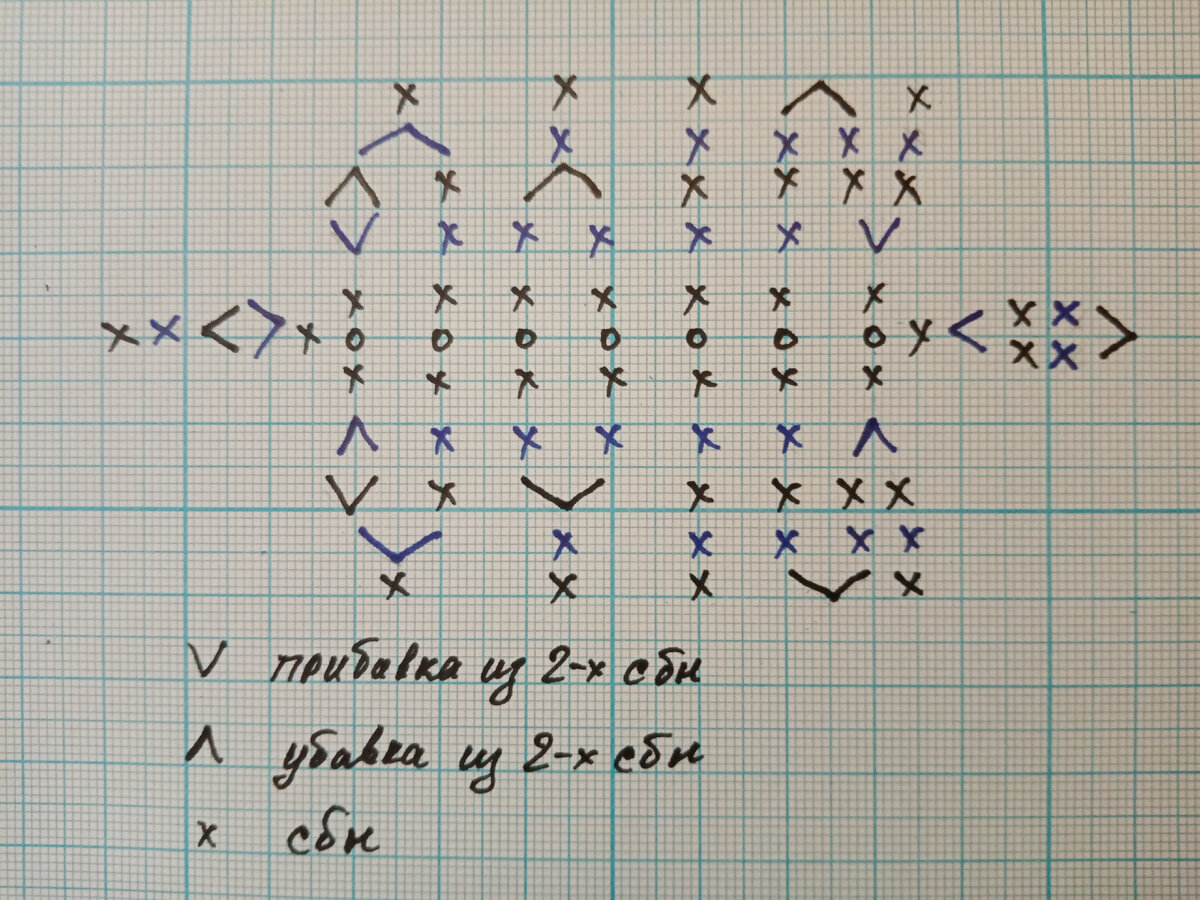 V прибавка из 2-х сбн
Λ убавка из 2-х сбн
x сбн